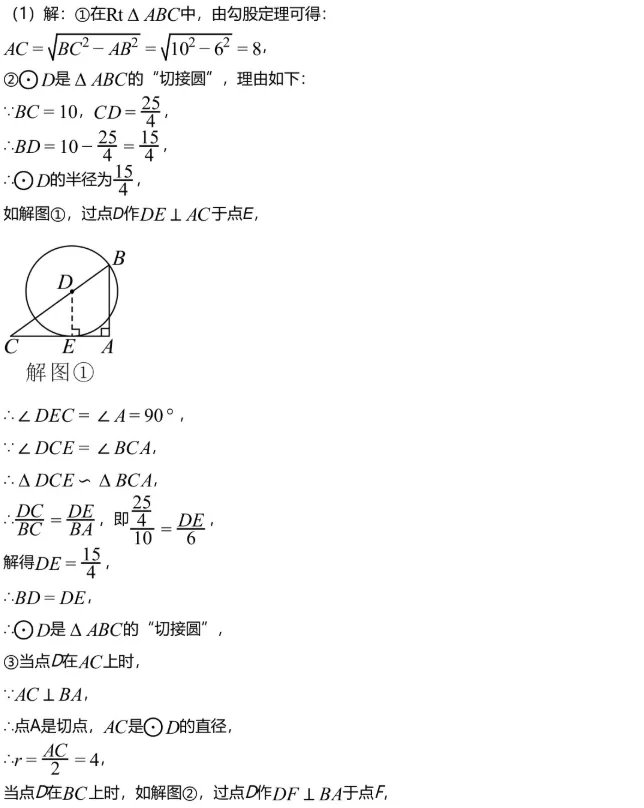 (1) 解：①在Rt△ABC中，由勾股定理可得：
AC = √(BC² − AB²) = √(10² − 6²) = 8，
②⊙D是△ABC的“切接圆”，理由如下：
∵BC = 10，CD = 25/4，
∴BD = 10 − 25/4 = 15/4，
∴⊙D的半径为15/4，
如解图①，过点D作DE⊥AC于点E，
B
D
C E A
解图①
∴∠DEC = ∠A = 90°，
∵∠DCE = ∠BCA，
∴△DCE∽△BCA，
∴DC/BC = DE/BA，即(25/4)/10 = DE/6，
解得DE = 15/4，
∴BD = DE，
∴⊙D是△ABC的“切接圆”，
③当点D在AC上时，
∵AC⊥BA，
∴点A是切点，AC是⊙D的直径，
∴r = AC/2 = 4，
当点D在BC上时，如解图②，过点D作DF⊥BA于点F，